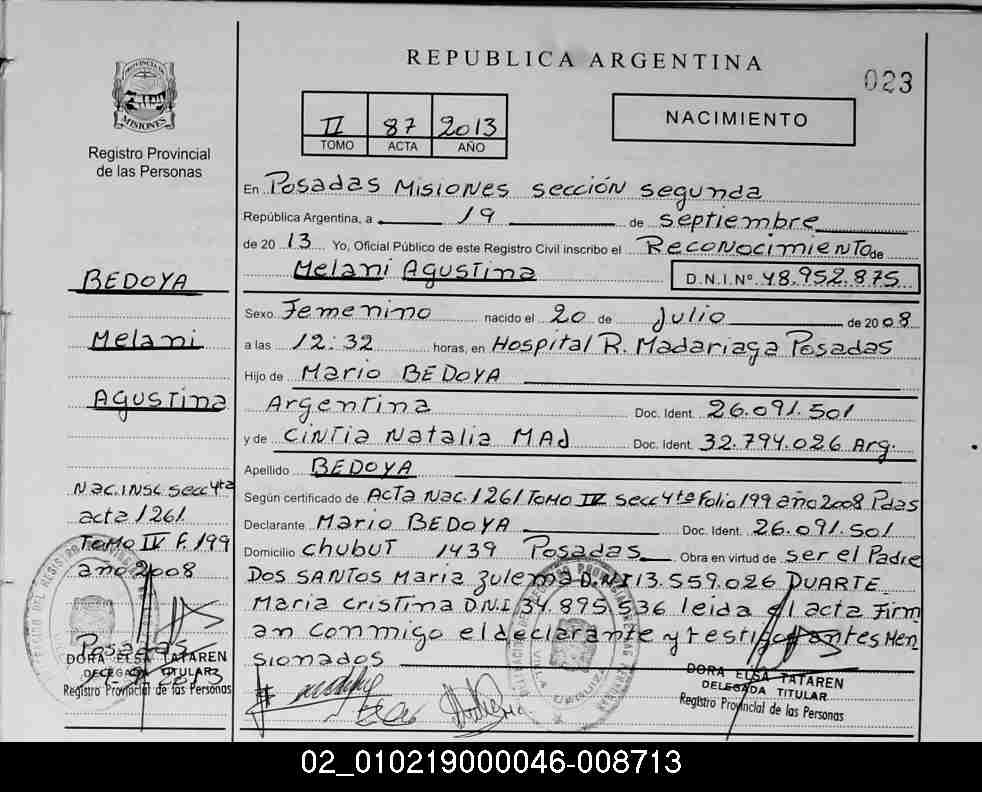 REPUBLICA ARGENTINA
023
PROVINCIA DE MISIONES
Registro Provincial
de las Personas
II 87 2013
TOMO ACTA AÑO
NACIMIENTO
En Posadas Misiones sección segunda
República Argentina, a 19 de septiembre
de 20 13 Yo, Oficial Público de este Registro Civil inscribo el Reconocimiento de
Melani Agustina D.N.I.Nº 48.952.875
Sexo Femenino nacido el 20 de Julio de 20 08
a las 12:32 horas, en Hospital R. Madariaga Posadas
Hijo de Mario BEDOYA
Argentina Doc. Ident. 26.091.501
y de Cintia Natalia MAd Doc. Ident. 32.794.026 Arg.
Apellido BEDOYA
Según certificado de Acta Nac. 1261 Tomo IV Secc 4ta Folio 199 año 2008 Pdas
Declarante Mario BEDOYA Doc. Ident. 26.091.501
Domicilio Chubut 1439 Posadas Obra en virtud de ser el Padre
DOS SANTOS Maria Zulema D.N.I 13.559.026 DUARTE
Maria Cristina D.N.I 34.895.536 leida el acta Firm
an conmigo el declarante y testigo antes Men
sionados
DORA ELSA TATAREN
DELEGADA TITULAR
Registro Provincial de las Personas
BEDOYA
Melani
Agustina
Nac. INSC Secc 4ta
acta 1261
Tomo IV F. 199
año 2008
Posadas
DORA ELSA TATAREN
DELEGADA TITULAR
Registro Provincial de las Personas
02_010219000046-008713